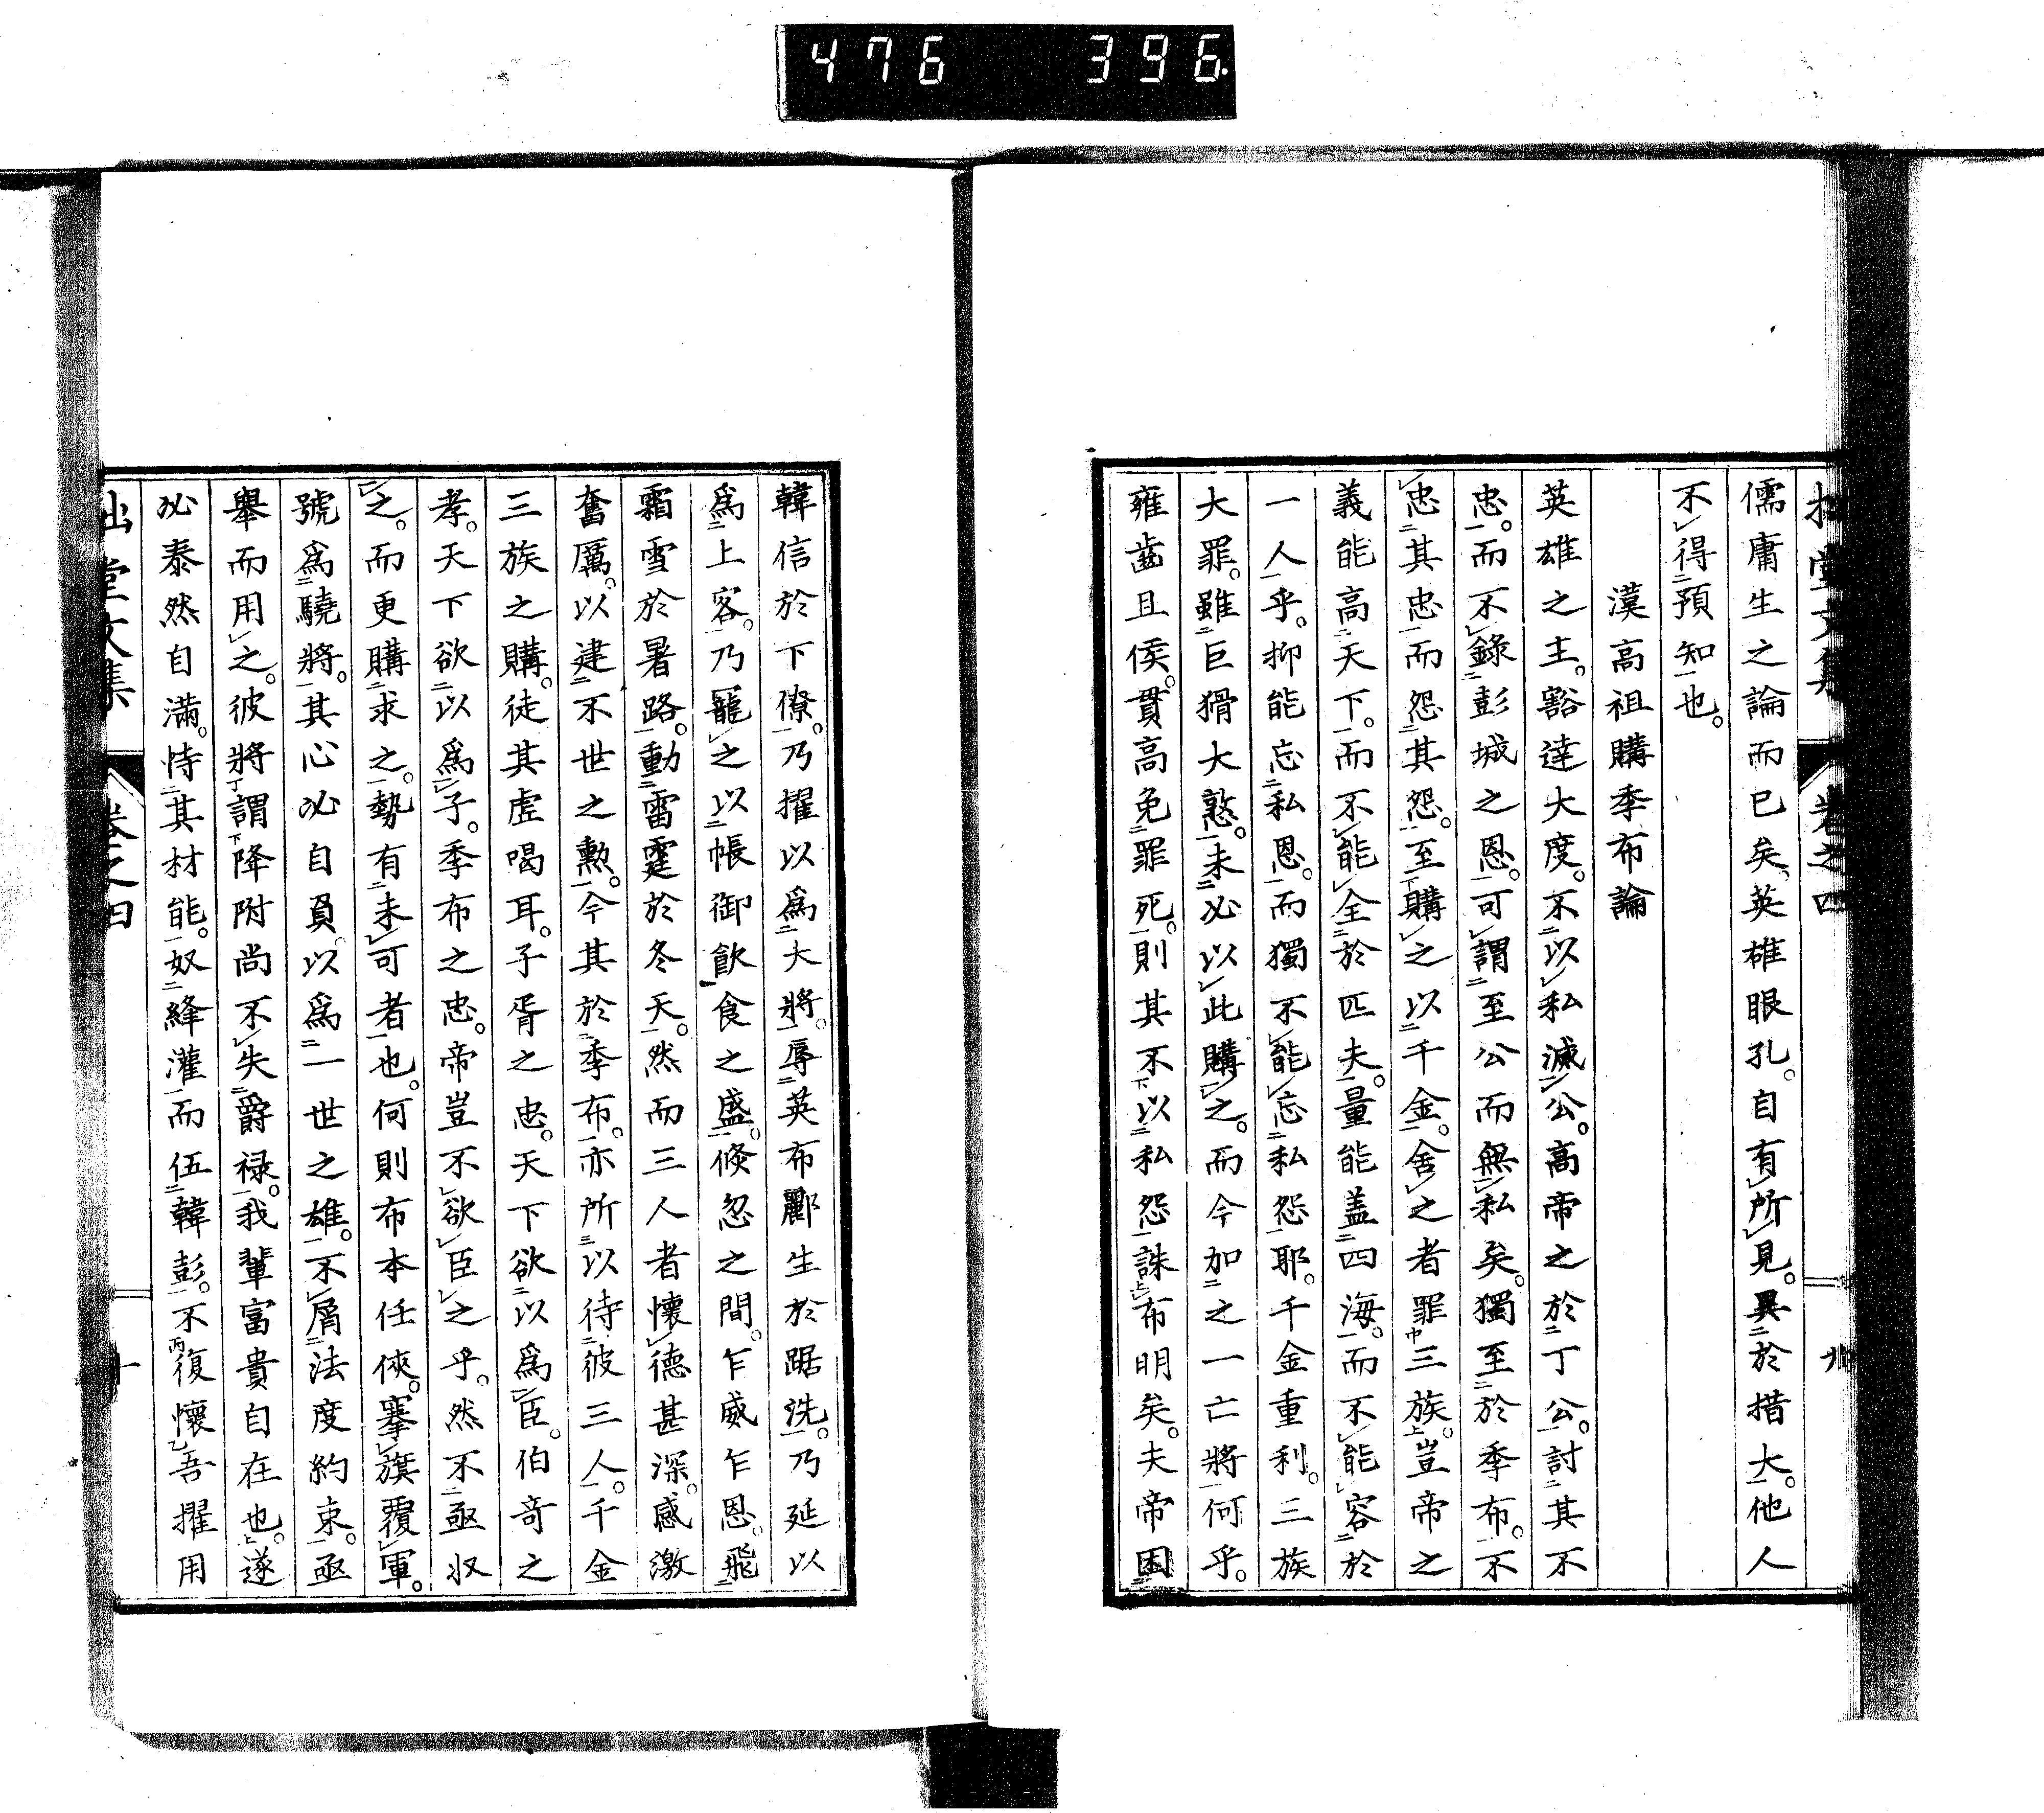 476 396
儒庸生之論而已矣英雄眼孔。自有所見。異於措大。他人
不得預知也。
漢高祖購季布論
英雄之主。豁達大度。不以私滅公。高帝之於丁公。討其不
忠。而不錄彭城之恩。可謂至公而無私矣。獨至於季布。不
忠其忠而怨其怨。至購之以千金。舍之者罪三族。豈帝之
義能高天下。而不能全於匹夫。量能盖四海。而不能容於
一人乎。抑能忘私恩。而獨不能忘私怨耶。千金重利。三族
大罪。雖巨猾大憝。未必以此購之。而今加之一亡將何乎。
雍齒且侯。貫高免罪死。則其不以私怨誅布明矣。夫帝困
韓信於下僚。乃擢以爲大將。辱英布酈生於踞洗。乃延以
爲上客。乃寵之以帳御飮食之盛。倐忽之間。乍威乍恩。飛
霜雪於暑路。動雷霆於冬天。然而三人者懷德甚深。感激
奮厲。以建不世之勲。今其於季布。亦所以待彼三人。千金
三族之購。徒其虛喝耳。子胥之忠。天下欲以爲臣。伯奇之
孝。天下欲以爲子。季布之忠。帝豈不欲臣之乎。然不亟収
之。而更購求之。勢有未可者也。何則布本任俠。搴旗覆軍。
號爲驍將。其心必自負。以爲一世之雄。不屑法度約束。亟
舉而用之。彼將謂降附尚不失爵禄。我輩富貴自在也。遂
必泰然自滿。恃其材能。奴絳灌而伍韓彭。不復懷吾擢用
拙堂文集 卷之四 十